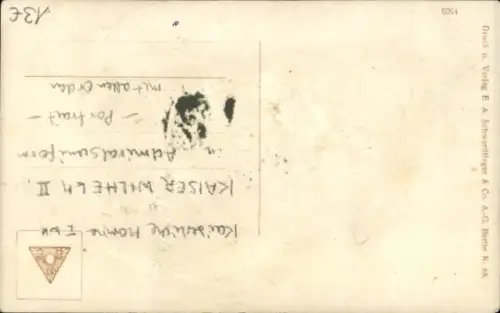 13€
Kaiserliche Marine I. WK
KAISER WILHELM II.
in Admiralsuniform
- Portrait -
mit allen Orden
1503
Druck u. Verlag E. A. Schwerdtfeger & Co. A.-G. Berlin N. 65.